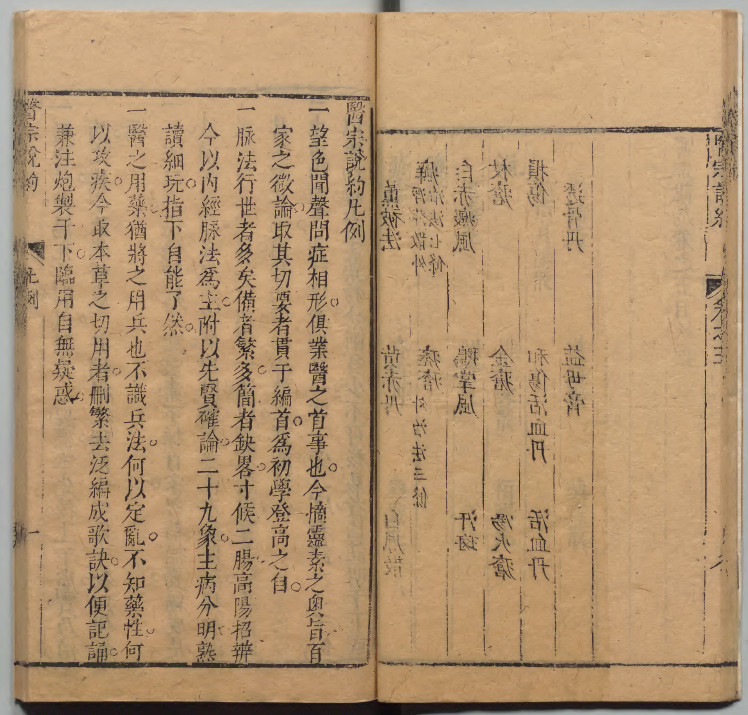 醫宗說約
透骨丹　益母膏
損傷　和傷活血丹　活血丹
杖瘡　金瘡　湯火瘡
白赤癜風　鵝掌風　汗斑
癬　治法七條　疥瘡　外治法三條
薰被法　黃赤丹
醫宗說約凡例
一望色聞聲問症相形俱業醫之首事也今摘靈素之奧旨百
家之微論取其切要者貫于編首爲初學登高之自
一脉法行世者多矣備者繁多簡者缺畧寸候二腸高陽招辨
今以內經脉法爲主附以先賢確論二十九象主病分明熟
讀細玩指下自能了然
一醫之用藥猶將之用兵也不識兵法何以定亂不知藥性何
以攻疾今取本草之切用者刪繁去泛編成歌訣以便記誦
兼注炮製于下臨用自無疑惑
醫宗說約　凡例　一